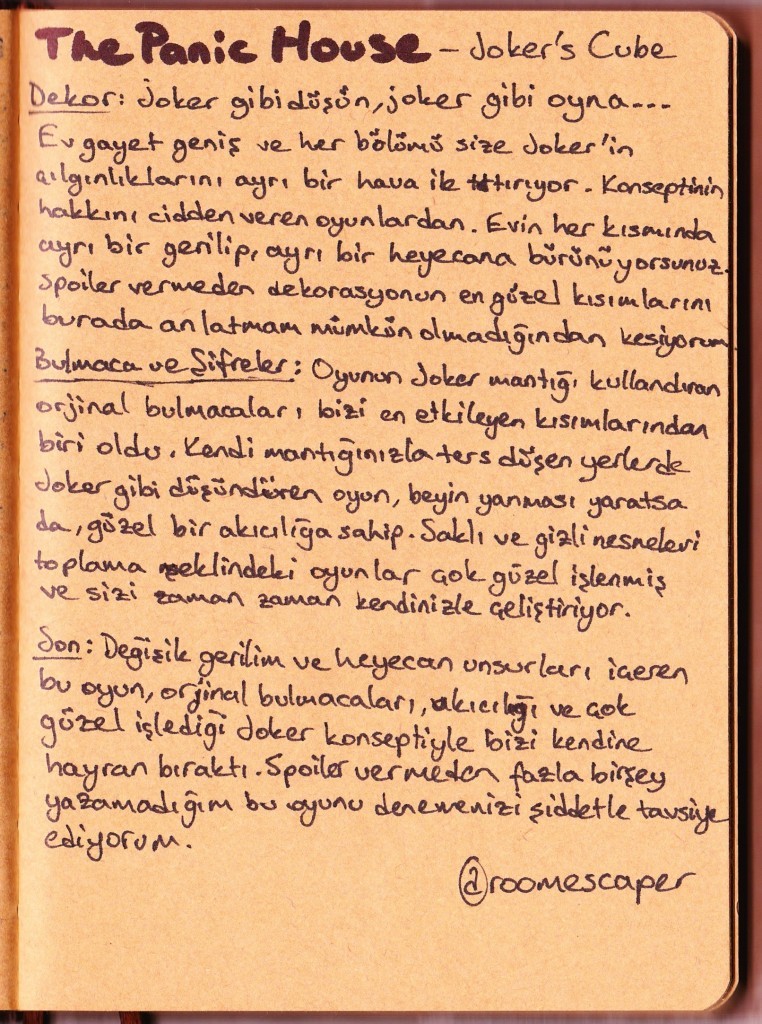 The Panic House – Joker's Cube
Dekor: Joker gibi düşün, joker gibi oyna...
Ev gayet geniş ve her bölümü size Joker'in
çılgınlıklarını ayrı bir hava ile tttırıyor. Konseptinin
hakkını cidden veren oyunlardan. Evin her kısmında
ayrı bir gerilip, ayrı bir heyecana bürünüyorsunuz.
Spoiler vermeden dekorasyonun en güzel kısımlarını
burada anlatmam mümkün olmadığından kesiyorum
Bulmaca ve Şifreler: Oyunun Joker mantığı kullandıran
orjinal bulmacaları, bizi en etkileyen kısımlarından
biri oldu. Kendi mantığınızla ters düşen yerlerde
Joker gibi düşündüren oyun, beyin yanması yaratsa
da, güzel bir akıcılığa sahip. Saklı ve gizli nesneleri
toplama şeklindeki oyunlar çok güzel işlenmiş
ve sizi zaman zaman kendinizle çeliştiriyor.
Son: Değişik gerilim ve heyecan unsurları içeren
bu oyun, orjinal bulmacaları, akıcılığı ve çok
güzel işlediği Joker konseptiyle bizi kendine
hayran bıraktı. Spoiler vermeden fazla birşey
yazamadığım bu oyunu denemenizi şiddetle tavsiye
ediyorum.
@roomescaper